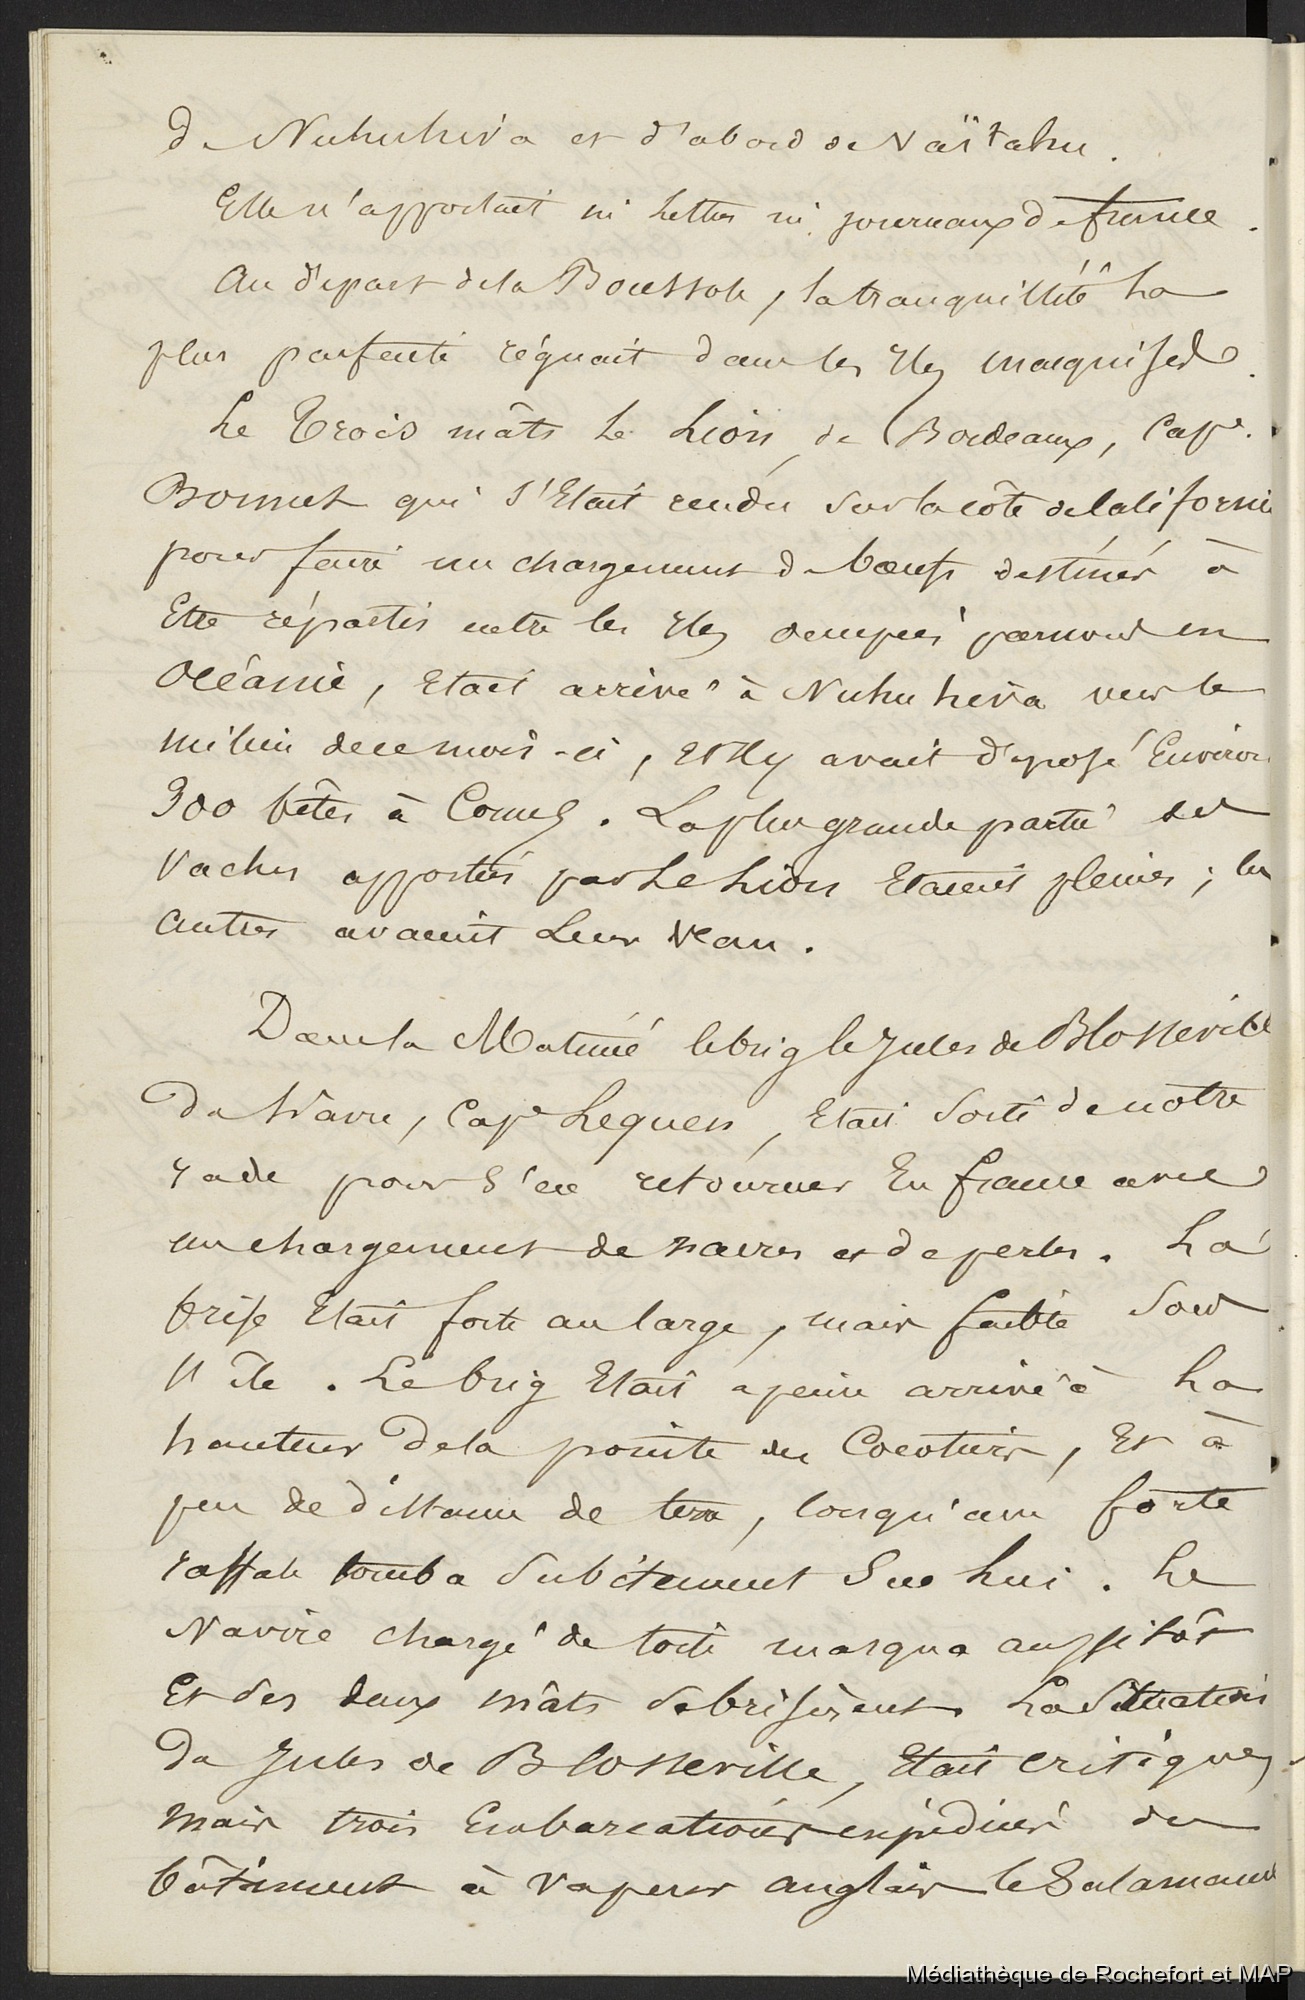 de Nuhuhiva et d'abord de Vaïtahu.
Elle n'apportait ni lettres ni journaux de france.
Au départ de la Boussole, la tranquillité la
plus parfaite régnait dans les Iles marquises.
Le Trois mâts le Lion, de Bordeaux, Cape.
Bonnet qui s'Etait rendu sur la côte de Californie
pour faire un chargement de bœufs destinés à
Etre répartis entre les Iles occupées par nous en
Océanie, Etait arrivé à Nuhuhiva vers le
milieu de ce mois-ci, Et Il y avait déposé Environ
300 bêtes à Cornes. La plus grande partie des
vaches apportées par Le Lion Etaient pleines; les
autres avaient Leur veau.
Dans la Matinée le brig le Jules de Blosseville
du Havre, Cape Lequen, Etait Sorti de notre
rade pour s'en retourner En france avec
un chargement de nacres et de perles. La
brise Etait forte au large, mais faible Sous
l'île. Le brig Etait a peine arrivé à La
hauteur de la pointe des Cocotiers, Et à
peu de distance de terre, lorsqu'une forte
raffale tomba Subitement Sur Lui. Le
Navire chargé de toile masqua aussitôt
Et ses deux mâts se brisèrent. La Situation
du Jules de Blosseville, Etait critique,
mais trois Embarcations expédiées du
bâtiment à vapeur anglais le Salamand
Médiathèque de Rochefort et MAP